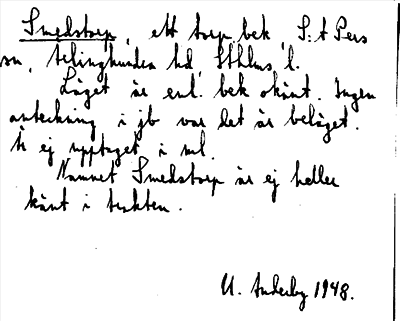 Smedstorp, ett torp bek, S:t Pers
sn, Selinghundra hd, Sthlms l.
Läget är enl. bek okänt. Ingen
anteckning i jb var det är beläget.
Är ej upptaget i ml.
Namnet Smedstorp är ej heller
känt i trakten.
U. Anderby 1948.